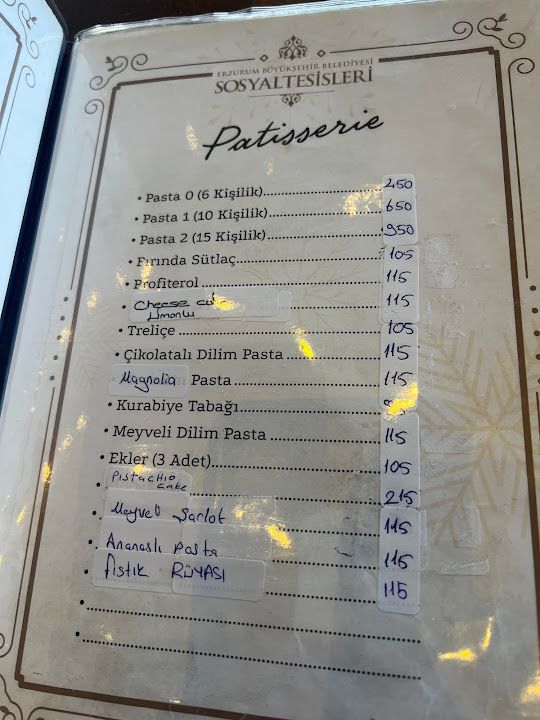 ERZURUM BÜYÜKŞEHİR BELEDİYESİ
SOSYALTESİSLERİ
Patisserie
• Pasta 0 (6 Kişilik) 450
• Pasta 1 (10 Kişilik) 650
• Pasta 2 (15 Kişilik) 950
• Fırında Sütlaç 105
• Profiterol 115
• Cheese
Limonlu 115
• Treliçe 105
• Çikolatalı Dilim Pasta 115
Magnolia Pasta 115
• Kurabiye Tabağı
• Meyveli Dilim Pasta 115
• Ekler (3 Adet) 105
• Pistachio
cake 215
Meyveli Şarlot 115
Ananaslı Pasta 115
• Fıstık RÜYASI 115